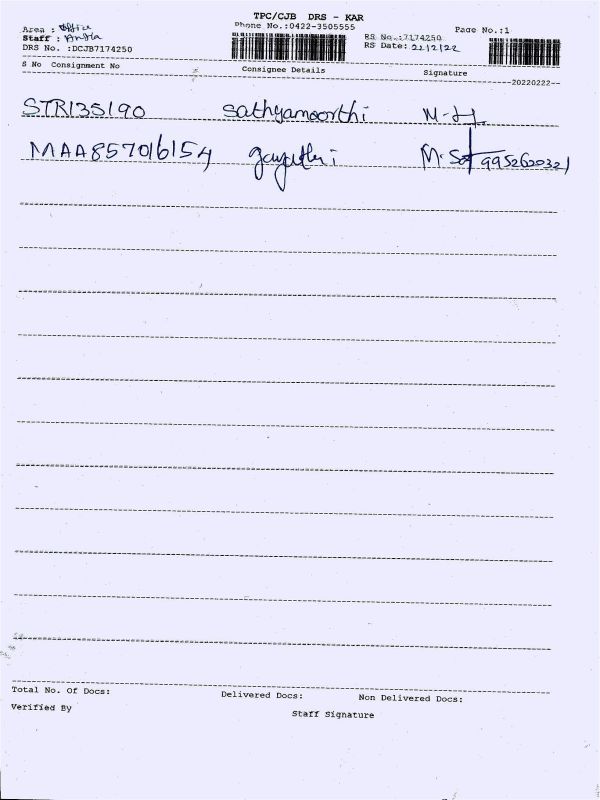 TPC/CJB DRS - KAR
Area : Office Phone No.:0422-3505555 Page No.:1
Staff : RS No.:7174250
DRS No. :DCJB7174250 RS Date: 22/2/22
S No Consignment No Consignee Details Signature
20220222--
STR135190 Sathyamoorthi
MAA857016154 gayathri 9952620321
Total No. Of Docs: Delivered Docs: Non Delivered Docs:
Verified By Staff Signature